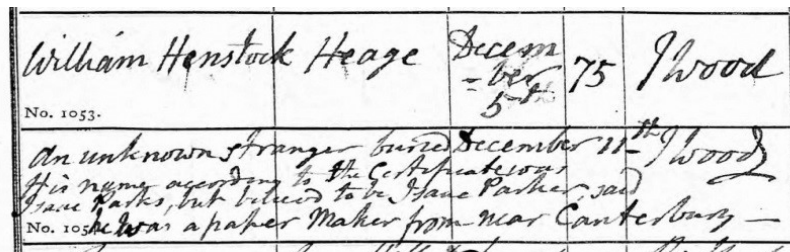 William Henstock Heage Decem
-ber
5th 75 J Wood
No. 1053.
An unknown stranger buried December 11th J Wood
His name according to the Certificate was
Isaac Parks, but believed to be Isaac Parker, said
No. 105 he was a paper Maker from near Canterbury —